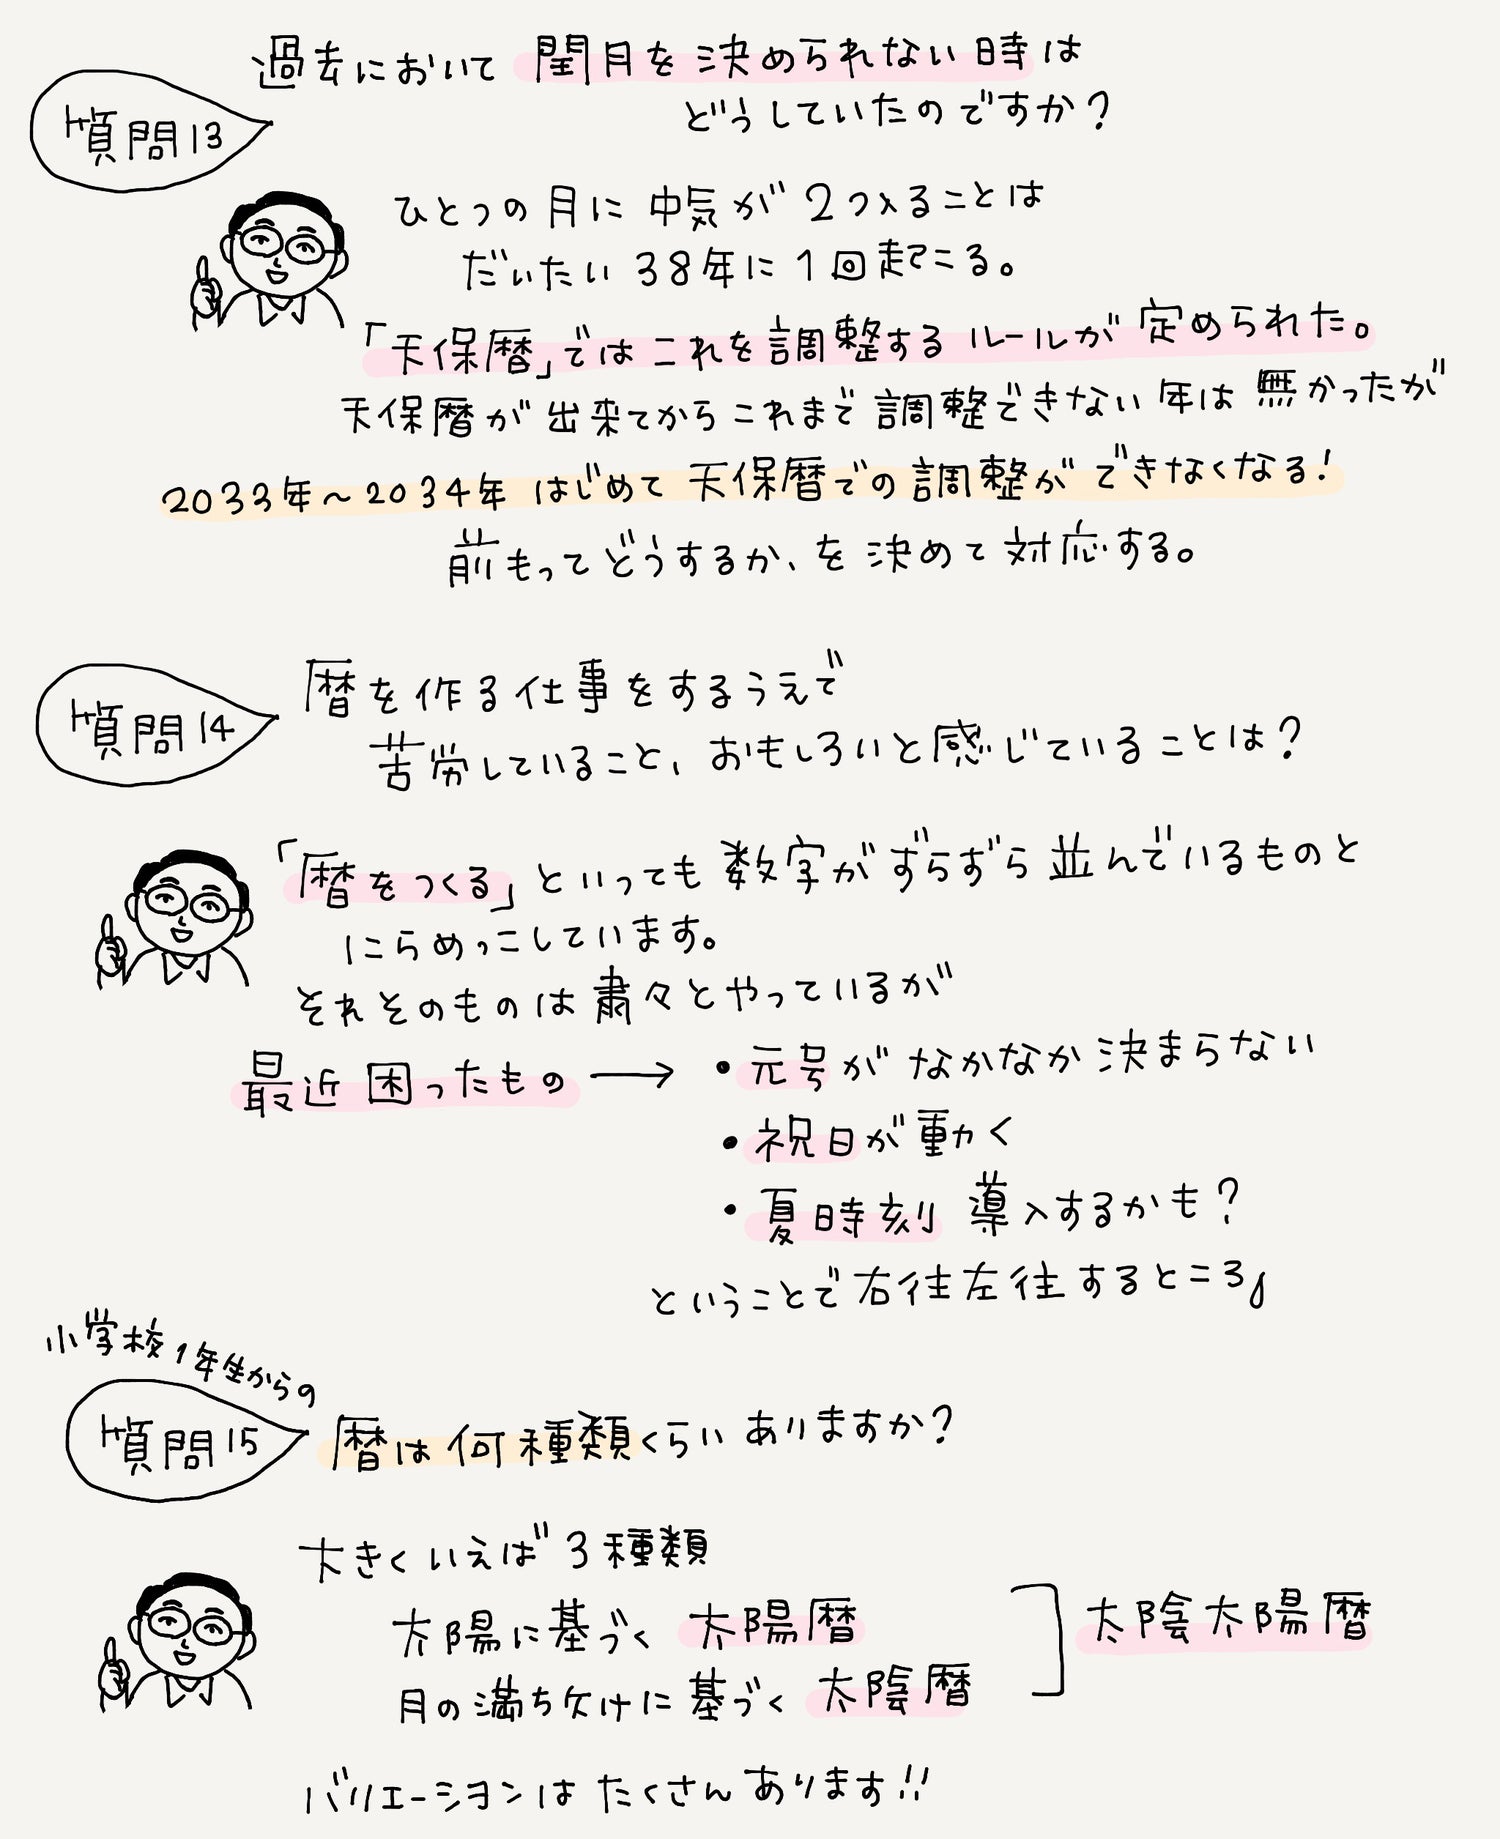 質問13
過去において閏月を決められない時は
どうしていたのですか?
ひとつの月に中気が2つ入ることは
だいたい38年に1回起こる。
「天保暦」ではこれを調整するルールが定められた。
天保暦が出来てからこれまで調整できない年は無かったが
2033年〜2034年 はじめて天保暦での調整ができなくなる!
前もってどうするか、を決めて対応する。
質問14
暦を作る仕事をするうえで
苦労していること、おもしろいと感じていることは?
「暦をつくる」といっても数字がずらずら並んでいるものと
にらめっこしています。
それそのものは粛々とやっているが
最近困ったもの → ・元号がなかなか決まらない
・祝日が動く
・夏時刻 導入するかも?
ということで右往左往するところ。
小学校1年生からの
質問15
暦は何種類くらいありますか?
大きくいえば3種類
太陽に基づく 太陽暦
月の満ち欠けに基づく 太陰暦
太陰太陽暦
バリエーションはたくさんあります!!